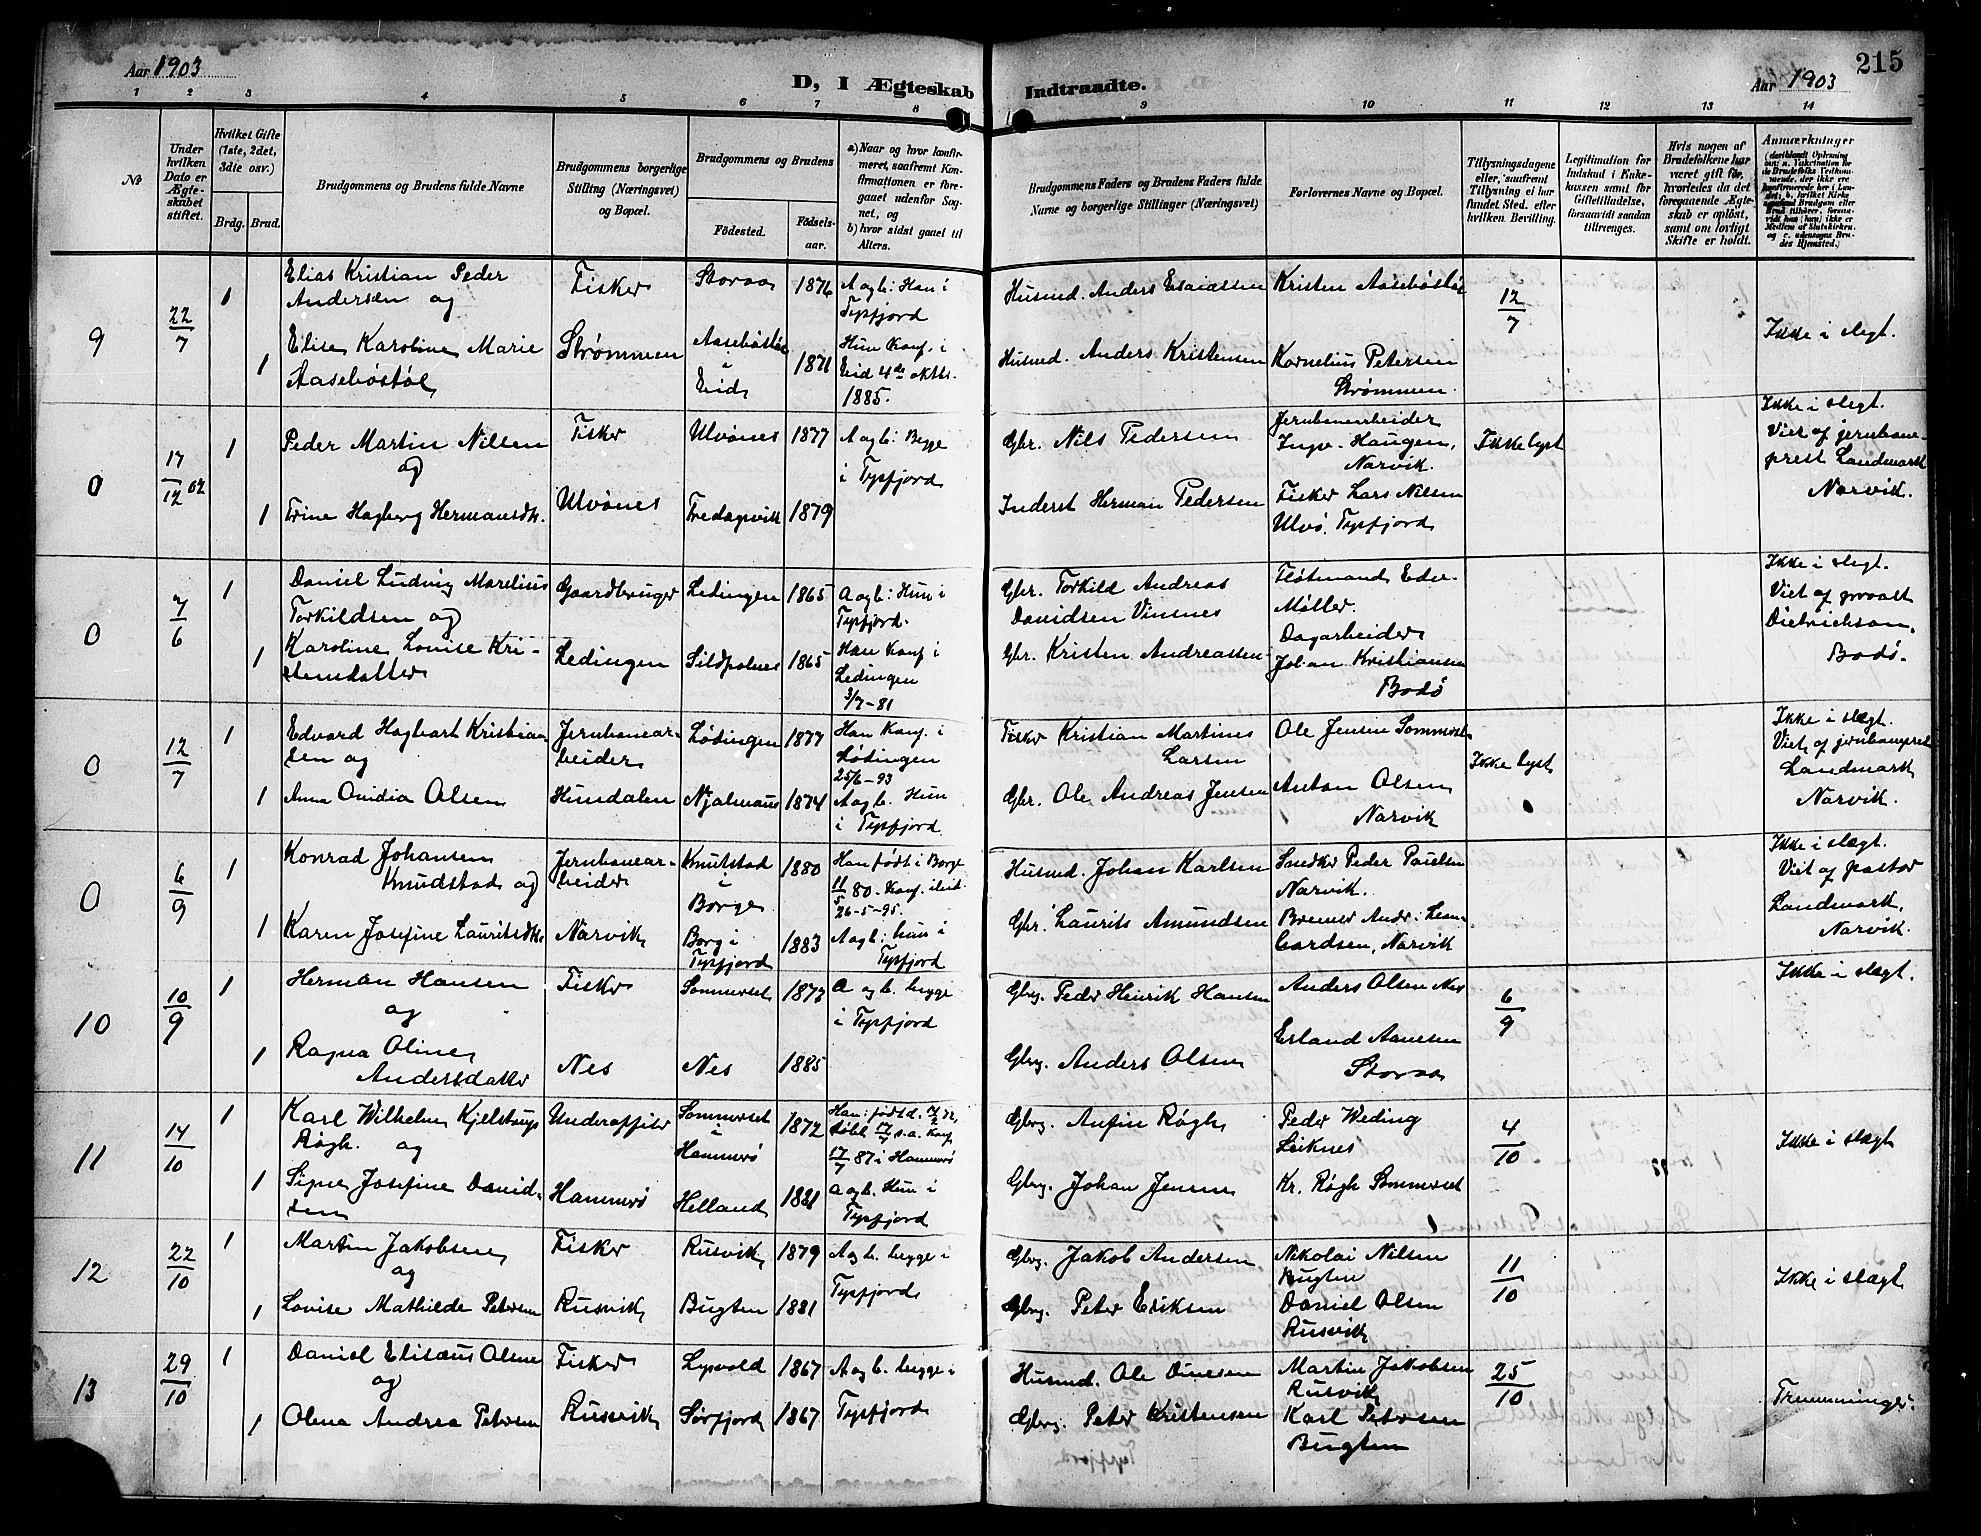 215
Aar 1903
D, I Ægteskab
Indtraadte.
Aar 1903
1 2 3 4 5 6 7 8 9 10 11 12 13 14
№
Under hvilken Dato er Ægteskabet stiftet.
Hvilket Gifte (1ste, 2det, 3die osv.)
Brdg. Brud.
Brudgommens og Brudens fulde Navne
Brudgommens borgerlige Stilling (Næringsvei) og Bopæl.
Brudgommens og Brudens
Fødested.
Fødselsaar.
a) Naar og hvor konfirmeret, saafremt Konfirmationen er foregaaet udenfor Sognet, og
b) hvor sidst gaaet til Alters.
Brudgommens Faders og Brudens Faders fulde Navne og borgerlige Stillinger (Næringsvei)
Forlovernes Navne og Bopæl.
Tillysningsdagene eller, saafremt Tillysning ei har fundet Sted, efter hvilken Bevilling.
Legitimation for Indskud i Enkekassen samt for Giftetilladelse, forsaavidt saadan tiltrænges.
Hvis nogen af Brudefolkene har været gift før, hvorledes da det foregaaende Ægteskab er opløst, samt om lovligt Skifte er holdt.
Anmærkninger
9
22/7
1
Elias Kristian Peder
Andersen og
Fisker
Storaa
1876
A og b: Han i
Tysfjord
Husmd. Anders Esaiassen
Kristen Aasebøstøl
12/7
Ikke i slegt.
1
Elise Karoline Marie
Aasebøstøl
Strømmen
Aasebøstøl
i
Eid
1871
Hun Konf. i
Eid 4de oktbr.
1885.
Husmd. Anders Kristensen
Kornelius Petersen
Strømmen.
0
17/12 02
1
Peder Martin Nilsen
og
Fisker
Ulvønes
1877
A og b: Begge
i Tysfjord
Gbr. Nils Pedersen
Jernbanearbeider
Ingv. Haugen,
Narvik.
Ikke lyst
Ikke i slegt.
Viet af jernbane-
prest Landmark
Narvik.
1
Trine Hagberg Hermansdtr.
Ulvønes
Fredagsvik
1879
Inderst Herman Pedersen
Fisker Lars Nilsen
Ulvø, Tysfjord
0
7/6
1
Daniel Ludvig Marelius
Torkildsen og
Gaardbruger
Lødingen
1865
A og b: Hun i
Tysfjord.
Gbr. Torkild Andreas
Davidsen Vinnes
Møller.
Ikke i slegt.
Viet af provst
Dietrichson,
Bodø.
1
Karoline Lovise Kri-
stensdatter
Lødingen
Sildpolnes
1865
Han Konf i
Lødingen
3/7-81
Gbr. Kristen Andreassen
Dagarbeider
Johan Kristiansen
Bodø
0
12/7
1
Edvard Hagbart Kristian-
sen og
Jernbanear-
beider
Lødingen
1877
Han Konf. i
Lødingen
25/6-93
Fisker Kristian Martines
Larsen
Ole Jensen Sommerset
Ikke lyst
Ikke i slægt.
Viet af jernbaneprest
Landmark
Narvik.
1
Anna Ovidia Olsen
Hundalen
1874
A og b. Hun
i Tysfjord.
Gbr. Ole Andreas Jensen
Anton Olsen
Narvik
0
6/9
1
Konrad Johansen
Knudstad og
Jernbanear-
beider
Knutstad
i
Borge
1880
Han født i Borge
11/5 80. Konf. ibid.
26-5-95.
Husmd. Johan Karlsen
Snedker Peder Paulsen
Narvik.
Ikke i slægt.
Viet af pastor
Landmark,
Narvik.
1
Karen Josefine Lauritsdtr.
Narvik
Borg i
Tysfjord
1883
A og b: hun i
Tysfjord
Gbr. Laurits Amundsen
Bremser Andr. Leon-
hardsen, Narvik
10
10/9
1
Herman Hansen
og
Fisker
Sommerset
1877
A og b. begge
i Tysfjord
Gbrg. Peder Henrik Hansen
Anders Olsen Nes
6/9
Ikke i slægt.
1
Ragna Oline
Andersdatter
Nes
Nes
1885
Gbrg. Anders Olsen
Erland Aanesen
Storaa
11
14/10
1
Karl Wilhelm Kjelstrup
Røgh. og
Underofficer
Sommerset
i
Hammerø
1872
Han: født d. 7/2 72,
døbt 17/7 s.a. Konf.
17/7 87 i Hammerø
Gbrg. Anfin Røgh
Peder Weding
Leiknes
4/10
Ikke i slægt
1
Signe Josefine David-
sen
Hammerø
Helland
1881
A og b. Hun i
Tysfjord
Gbrg. Johan Jensen
Kr. Røgh Sommerset
12
22/10
1
Martin Jakobsen
og
Fisker
Rusvik
1879
A og b. begge i
Tysfjord
Gbrg. Jakob Andersen
Nikolai Nilsen
Bugten
11/10
Ikke i slægt
1
Lovise Mathilde Petersen
Rusvik
Bugten
1881
Gbrg. Peter Eriksen
Daniel Olsen
Rusvik
13
29/10
1
Daniel Elisæus Olsen
og
Fisker
Lysvold
1867
A og b. begge i
Tysfjord
Husmd. Ole Ounesen
Martin Jakobsen
Rusvik
25/10
Tremenninger.
1
Olina Andrea Petersen
Russvik
Sørfjord
1867
Gbrg. Peter Kristensen
Karl Petersen
Bugten